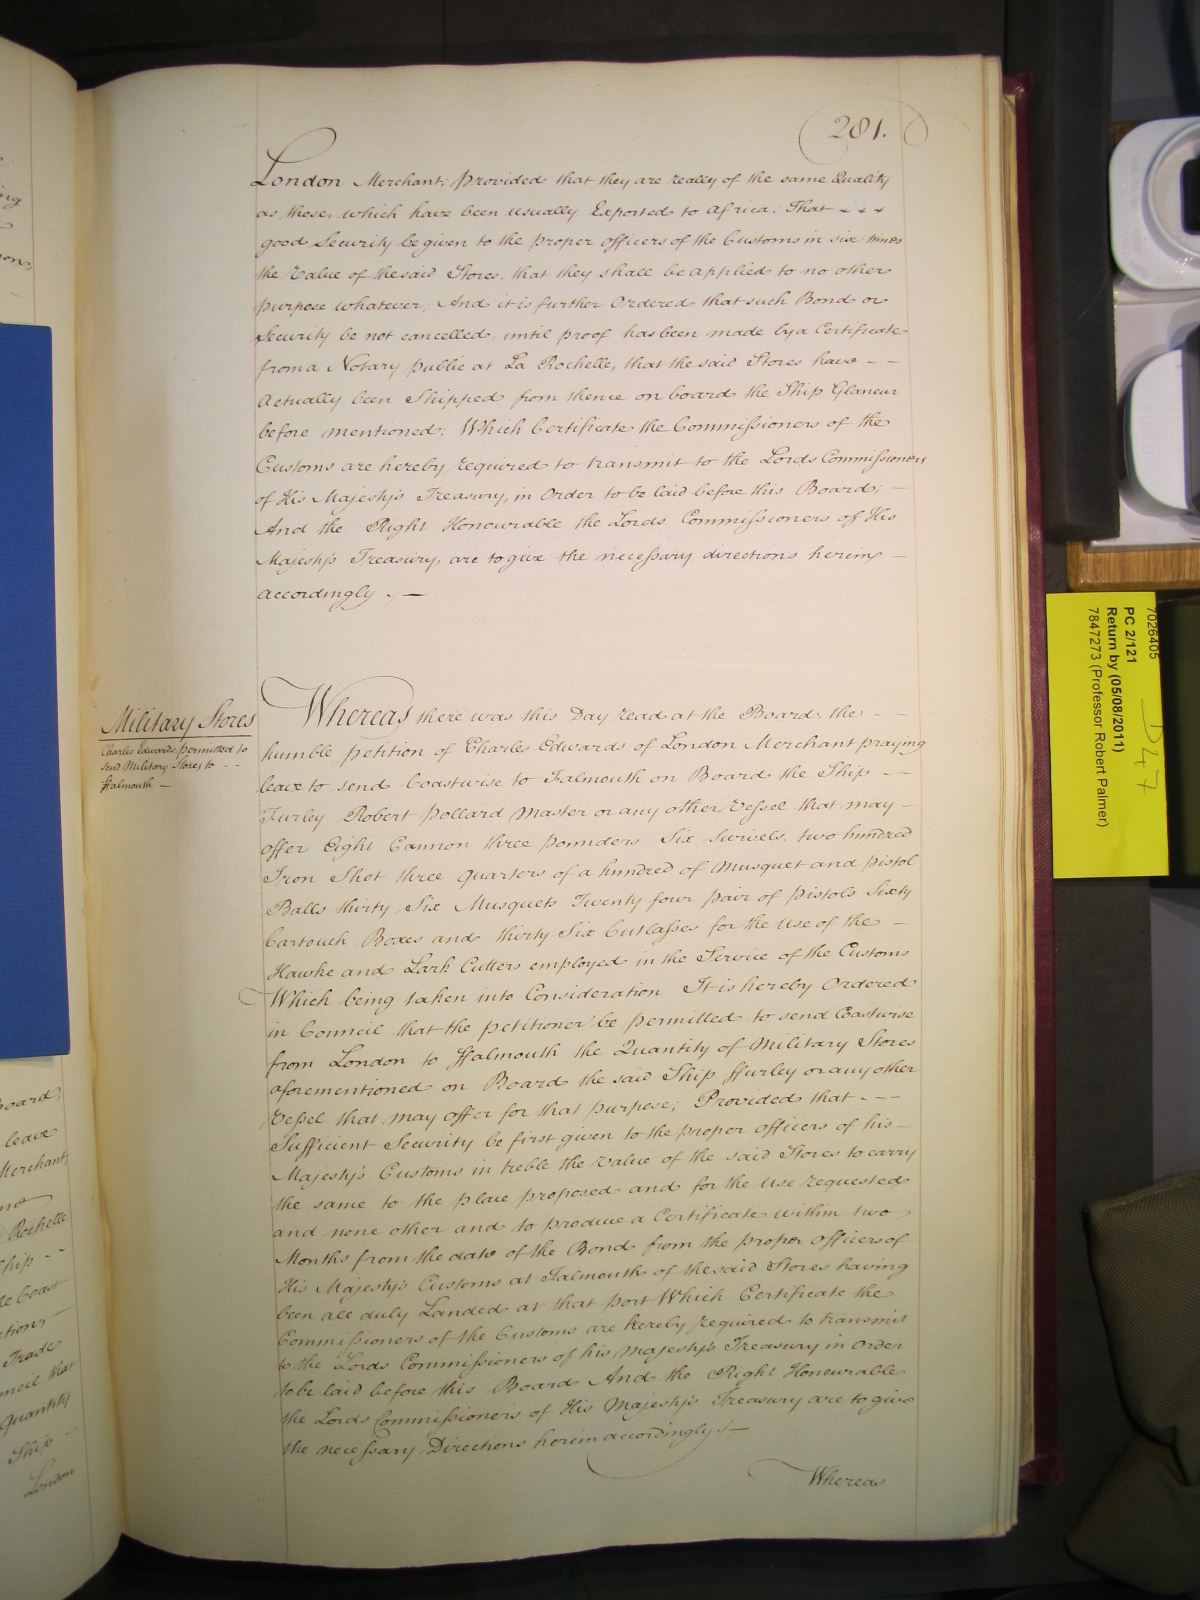 281.
London Merchant, provided that they are really of the same Quality
as those, which have been usually Exported to Africa; That
good Security be given to the proper officers of the Customs in six times
the Value of the said Stores, that they shall be applied to no other
purpose whatever; And it is further Ordered that such Bond or
Security be not cancelled, until proof has been made by a Certificate
from a Notary public at La Rochelle, that the said Stores have - -
Actually been Shipped from thence on board the Ship Glaneur
before mentioned; Which Certificate the Commissioners of the
Customs are hereby required to transmit to the Lords Commissioners
of His Majesty's Treasury, in Order to be laid before this Board; -
And the Right Honourable the Lords Commissioners of His
Majesty's Treasury, are to give the necessary directions herein -
accordingly. -
Military Stores
Charles Edwards permitted to
send Military Stores to - -
ffalmouth -
Whereas there was this Day read at the Board, the - -
humble petition of Charles Edwards of London Merchant praying
leave to send Coastwise to Falmouth on Board the Ship - -
Furley Robert Pollard Master or any other Vessel that may -
offer Eight Cannon three pounders Six Swivels, two hundred
Iron Shot three quarters of a hundred of Musquet and pistol
Balls thirty Six Musquets Twenty four pair of Pistols Sixty
Cartouch Boxes and thirty Six Cutlasses for the Use of the -
Hawke and Lark Cutters employed in the Service of the Customs
Which being taken into Consideration It is hereby Ordered
in Council that the petitioner be permitted to send Coastwise
from London to ffalmouth the Quantity of Military Stores
aforementioned on Board the said Ship ffurley or any other
Vessel that may offer for that purpose; Provided that - - -
Sufficient Security be first given to the proper officers of his -
Majesty's Customs in treble the value of the said Stores to carry
the same to the place proposed and for the use requested
and none other and to produce a Certificate within two
Months from the date of the Bond from the proper officers of
His Majesty's Customs at Falmouth of the said Stores having
been all duly Landed at that port Which Certificate the
Commissioners of the Customs are hereby required to transmit
to the Lords Commissioners of his Majesty's Treasury in order
to be laid before this Board And the Right Honourable
the Lords Commissioners of His Majesty's Treasury are to give
the necessary Directions herein accordingly. -
Whereas
7026405
PC 2/121
Return by (05/08/2011)
7847273 (Professor Robert Palmer)
D47
Board;
leave
Merchant;
Rochelle
Ship - -
Coast
Trade
that
Quantity
Ship -
London